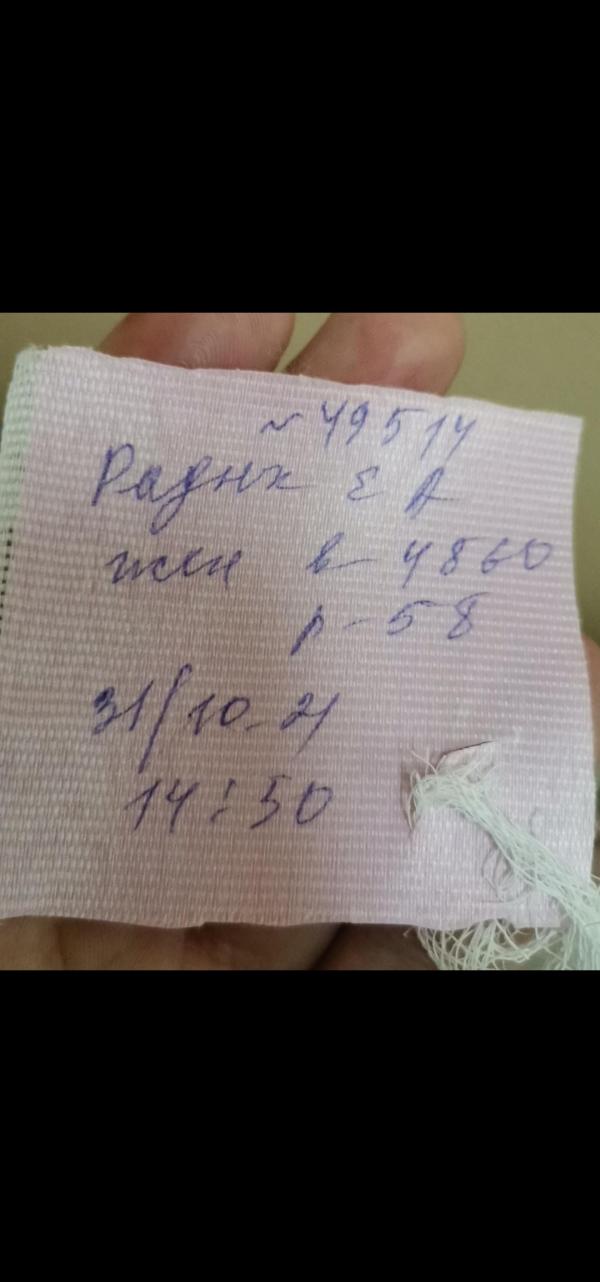 ~ 49514
Радник Е А
жен в-4860
р-58
31/10-21
14:50